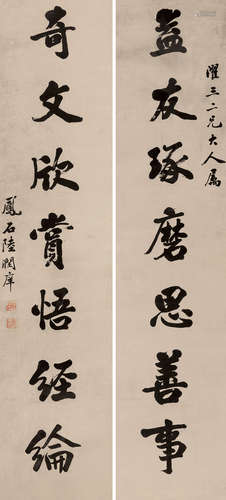 益友琢磨思善事
濯三二兄大人属
奇文欣賞悟經綸
鳳石陸潤庠